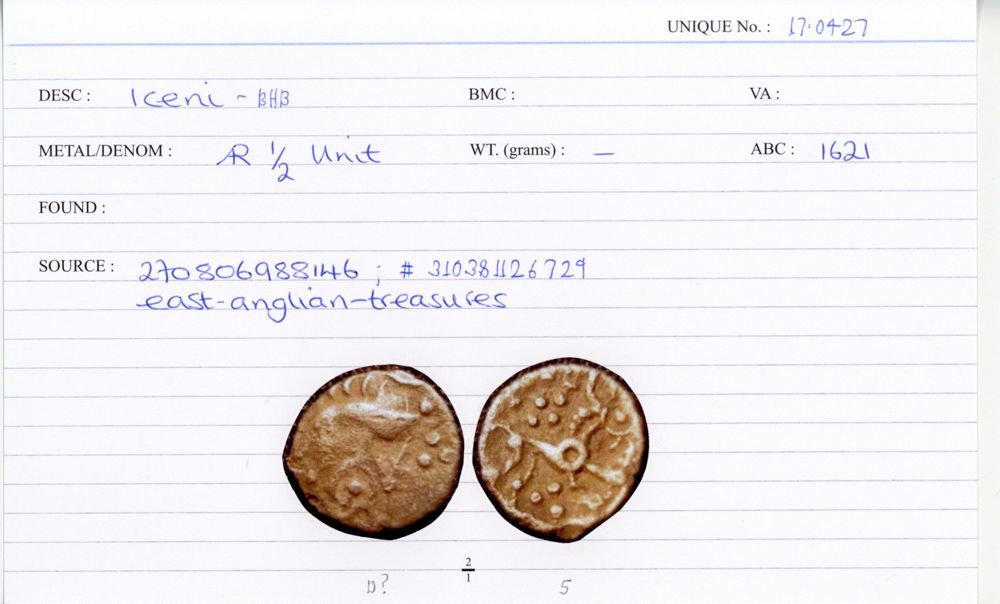 UNIQUE No. : 17.0427
DESC : Iceni - BHB BMC : VA :
METAL/DENOM : AR 1/2 Unit WT. (grams) : — ABC : 1621
FOUND :
SOURCE : 270806988146 ; # 310381126729
east-anglian-treasures
2/1
D? 5